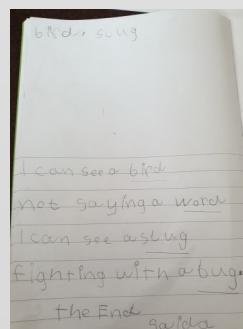 bird, slug
I can see a bird
not saying a word
I can see a slug
fighting with a bug.
the End
saida